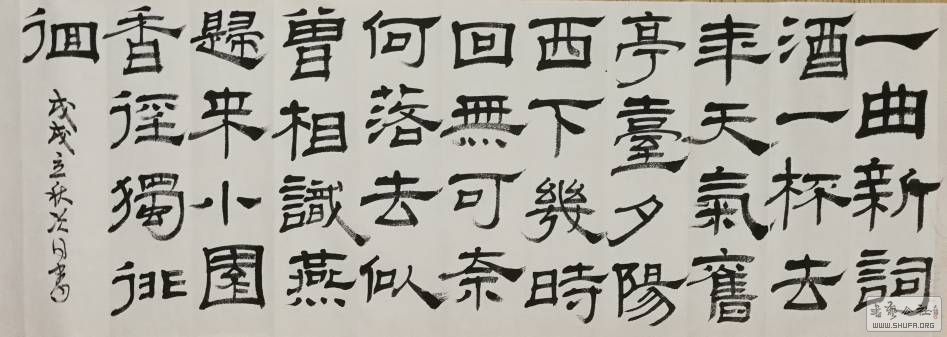 一曲新詞
酒一杯去
年天氣舊
亭臺夕陽
西下幾時
回無可奈
何落去似
曽相識燕
歸来小園
香徑獨徘
徊
戊戌立秋次日書
WWW.SHUFA.ORG